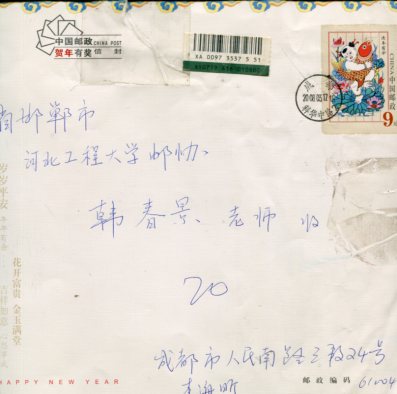 中国邮政 CHINA POST
贺年有奖 信封
XA 0097 3537 5 51
CHINA
中国邮政
9
2008.05.12
邯郸市
河北工程大学邮协.
韩春景 老师 收
20
岁岁平安
花开富贵 金玉满堂
成都市人民南路三段24号
HAPPY NEW YEAR
邮政编码